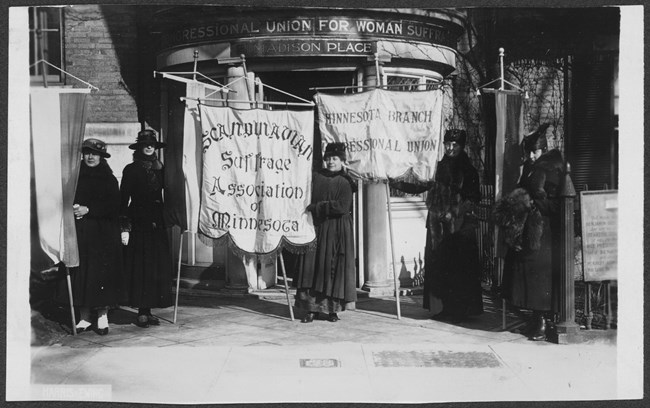 CONGRESSIONAL UNION FOR WOMAN SUFFRAGE
MADISON PLACE
SCANDINAVIAN
Suffrage
Association
of
Minnesota
MINNESOTA BRANCH
CONGRESSIONAL UNION